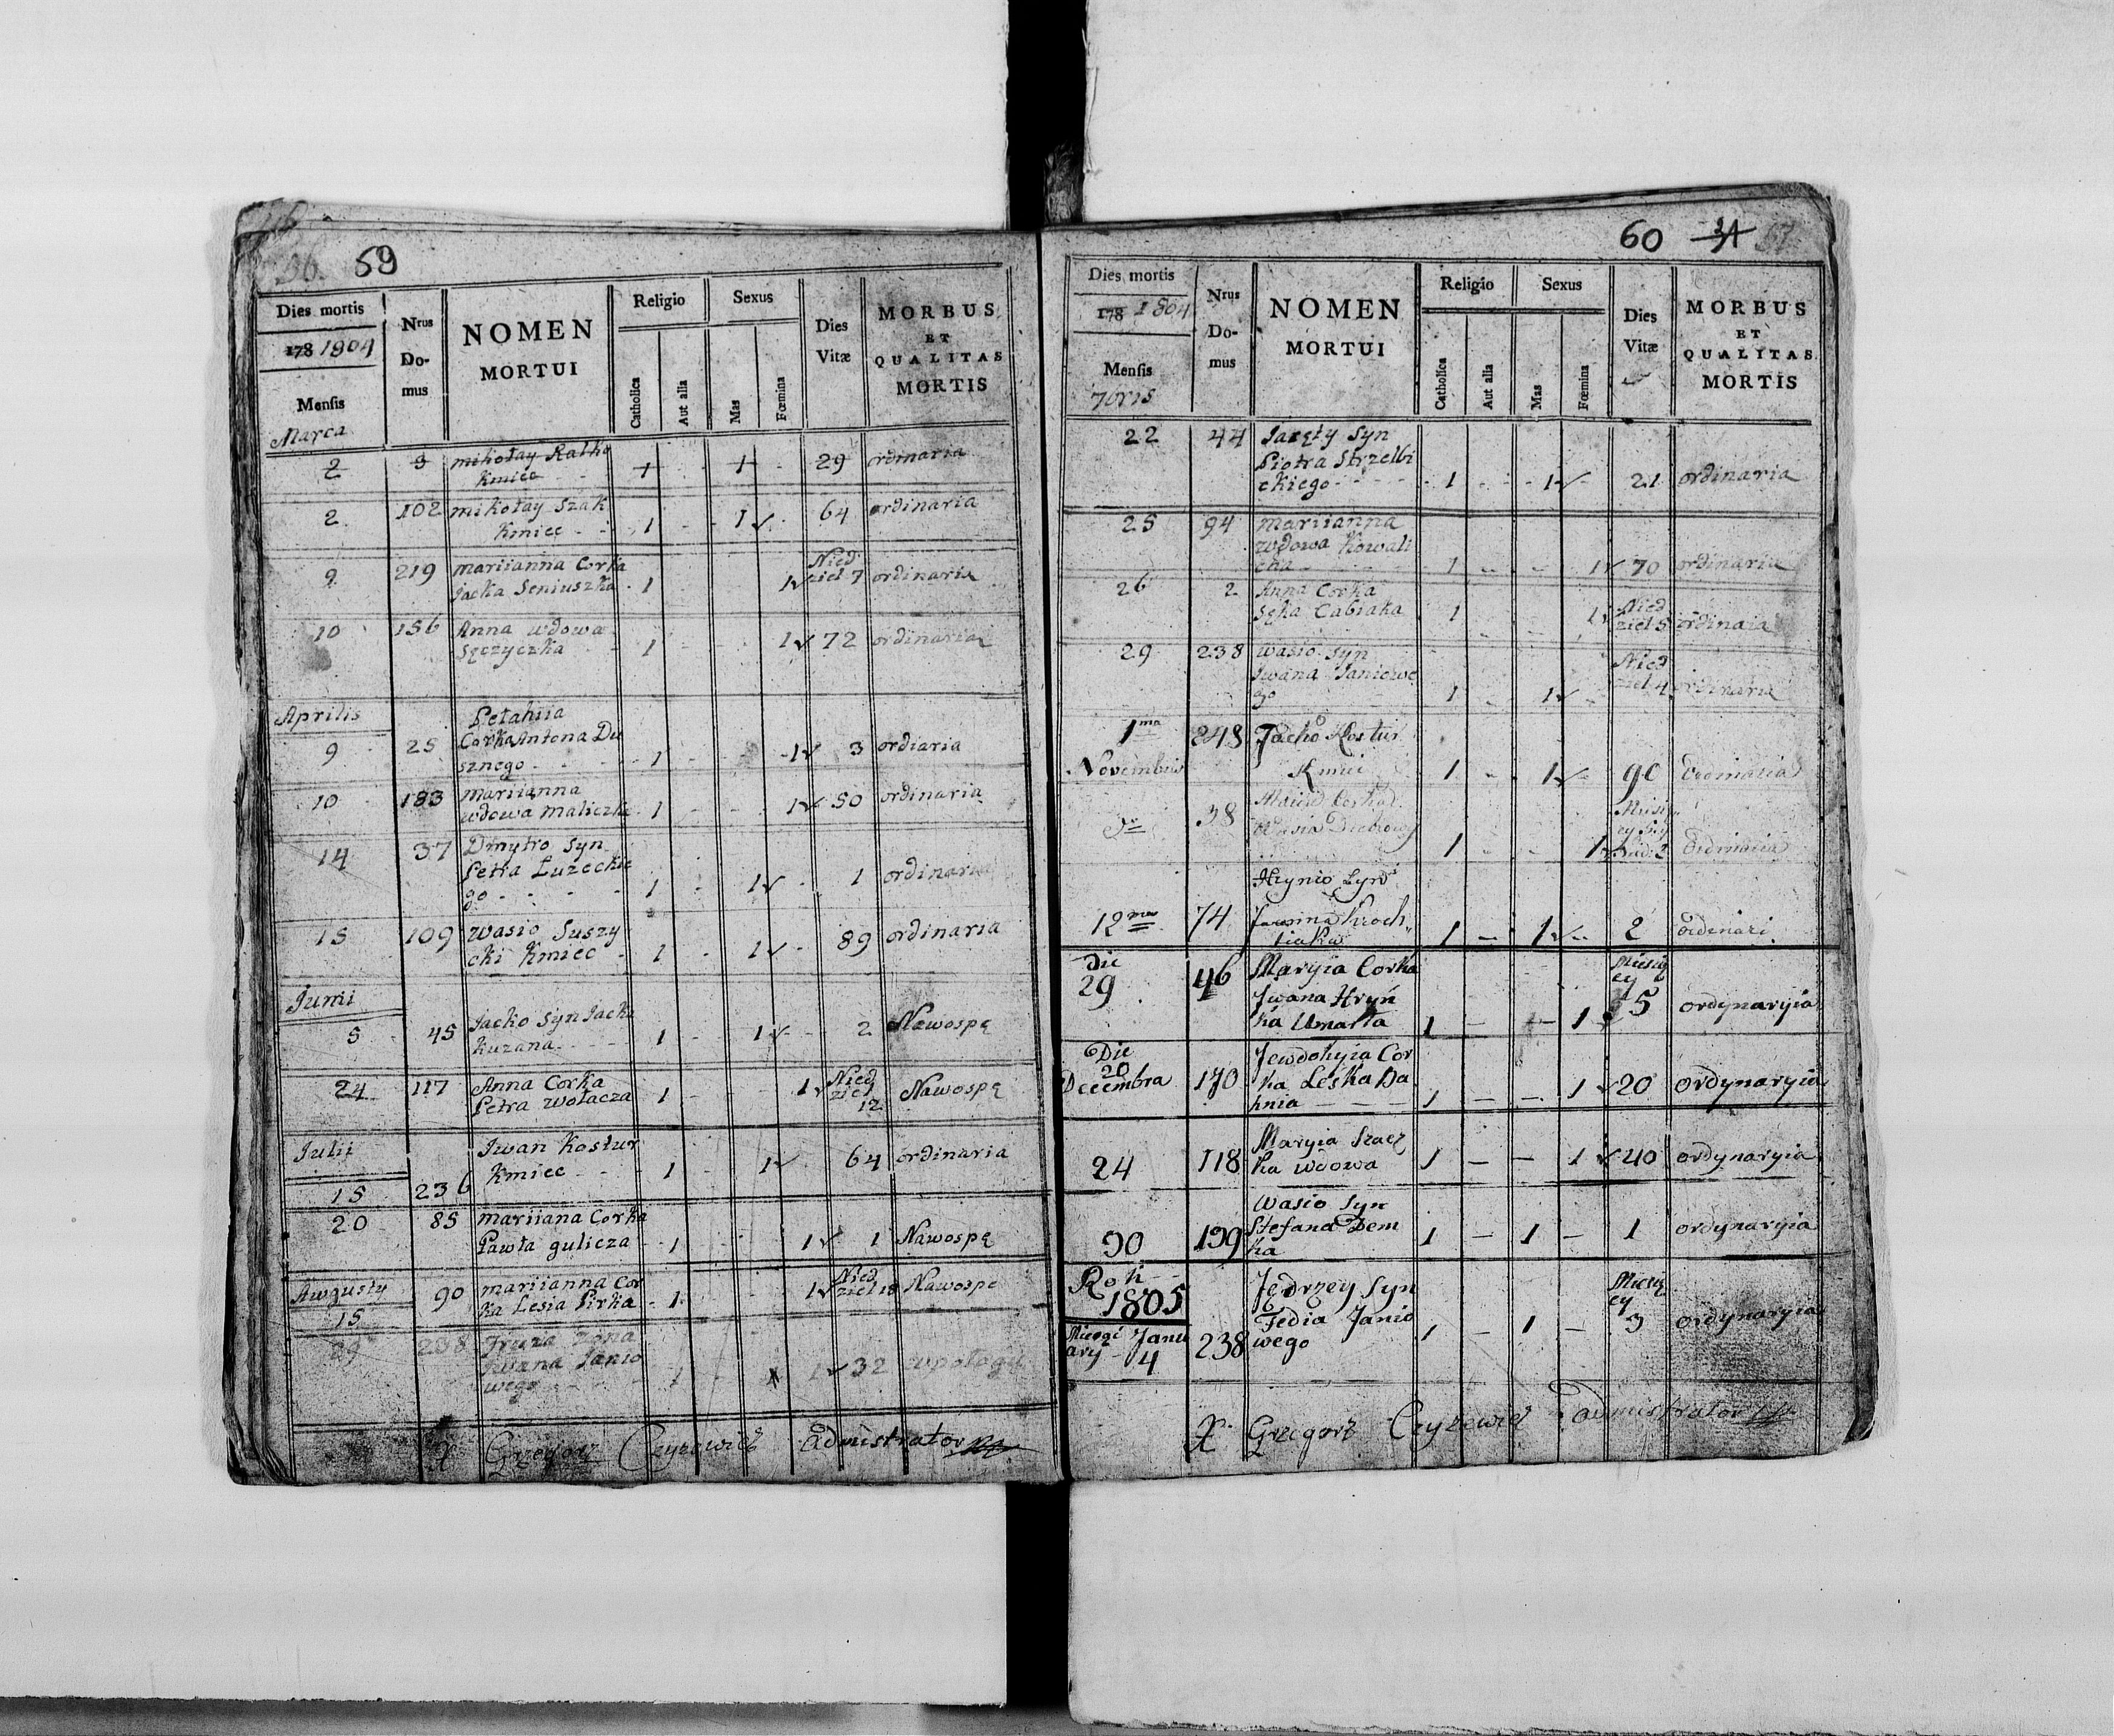 59
Dies mortis
178 1804
Mensis
Nrus
Do-
mus
NOMEN
MORTUI
Religio
Catholica
Aut alia
Sexus
Mas
Fœmina
Dies
Vitæ
MORBUS
ET
QUALITAS
MORTIS
Marca
2 3 mikołay Ratko 1 - 1 - 29 ordinaria
Kmiec
2 102 mikołay Szak 64 ordinaria
Kmiec - 1 - - 1 -
9 219 mariianna Corka Nied
Jacka Seniuszka - 1 1 ziel 7 ordinaria
10 156 Anna wdowa
Sęczyczka - 1 - - 1 72 ordinaria
Aprilis
Petahiia
9 25 Corka Antona Du
sznego - 1 - - 1 3 ordiaria
10 183 mariianna
wdowa Maliczka 1 - - 1 50 ordinaria
14 37 Dmytro Syn
Petra Łuzeckie
go - 1 - 1 - 1 ordinaria
15 109 wasio Suszy
cki Kmiec - 1 - 1 - 89 ordinaria
Junii
5 45 Jacko Syn Jacka
Kuzana - 1 - 1 - 2 Nawospę
24 117 Anna Corka Nied
Petra wołacza 1 - 1 ziel
12 Nawospę
Julii
15 236 Iwan Kostur
Kmiec - 1 - 1 64 ordinaria
20 85 mariiana Corka
Pawła gulicza - 1 1 1 Nawospę
Awgusty
15 90 mariianna Cor Nied
ka Lesia Pirka - 1 1 ziel 18 Nawospę
29 238 żona
Iwana Janio
wego - 1 1 32
X Grzegorz Administrator
60 31
Dies mortis
178 1804
Mensis
7bris
Nrus
Do-
mus
NOMEN
MORTUI
Religio
Catholica
Aut alia
Sexus
Mas
Fœmina
Dies
Vitæ
MORBUS
ET
QUALITAS
MORTIS
22 44 Syn
Piotra Strzelbi
ckiego - 1 - - 1 - 21 ordinaria
25 94 mariianna
wdowa Kowali
cha 1 - - 1 70 ordinaria
26 2 Anna Corka Nied
Sęka Cabiaka 1 - - 1 ziel 5 ordinaia
29 238 wasio Syn Nied
Iwana Janiowe ziel 4
go 1 - 1 ordinaria
1ma 248 Jacko Kostur
Novembris 1 - 1 90 ordinaria
38 Corka
Wasia 1 - - 1 ordinaria
Hrynio Syn
12ma 74 1 - 1 - 2 ordinari
Die
29 46 Maryia Corka Miesię
Iwana Hryń cy
ka Umarła 1 - - 1 15 ordynaryia
Die
20
Decembra 170 Jewdohyia Cor
ka Leśka Da
hnia 1 - - 1 20 ordynaryia
24 118 Maryia Szacz
ka wdowa 1 - - 1 40 ordynaryia
30 199 Wasio Syn
Stefana Dem
ka 1 - 1 - 1 ordynaryia
Rok
1805
Janu
ary 4 238 Jędrzey Syn Miesię
Fedia Janio cy
wego 1 - 1 - 3 ordynaryia
X Grzegorz Administrator